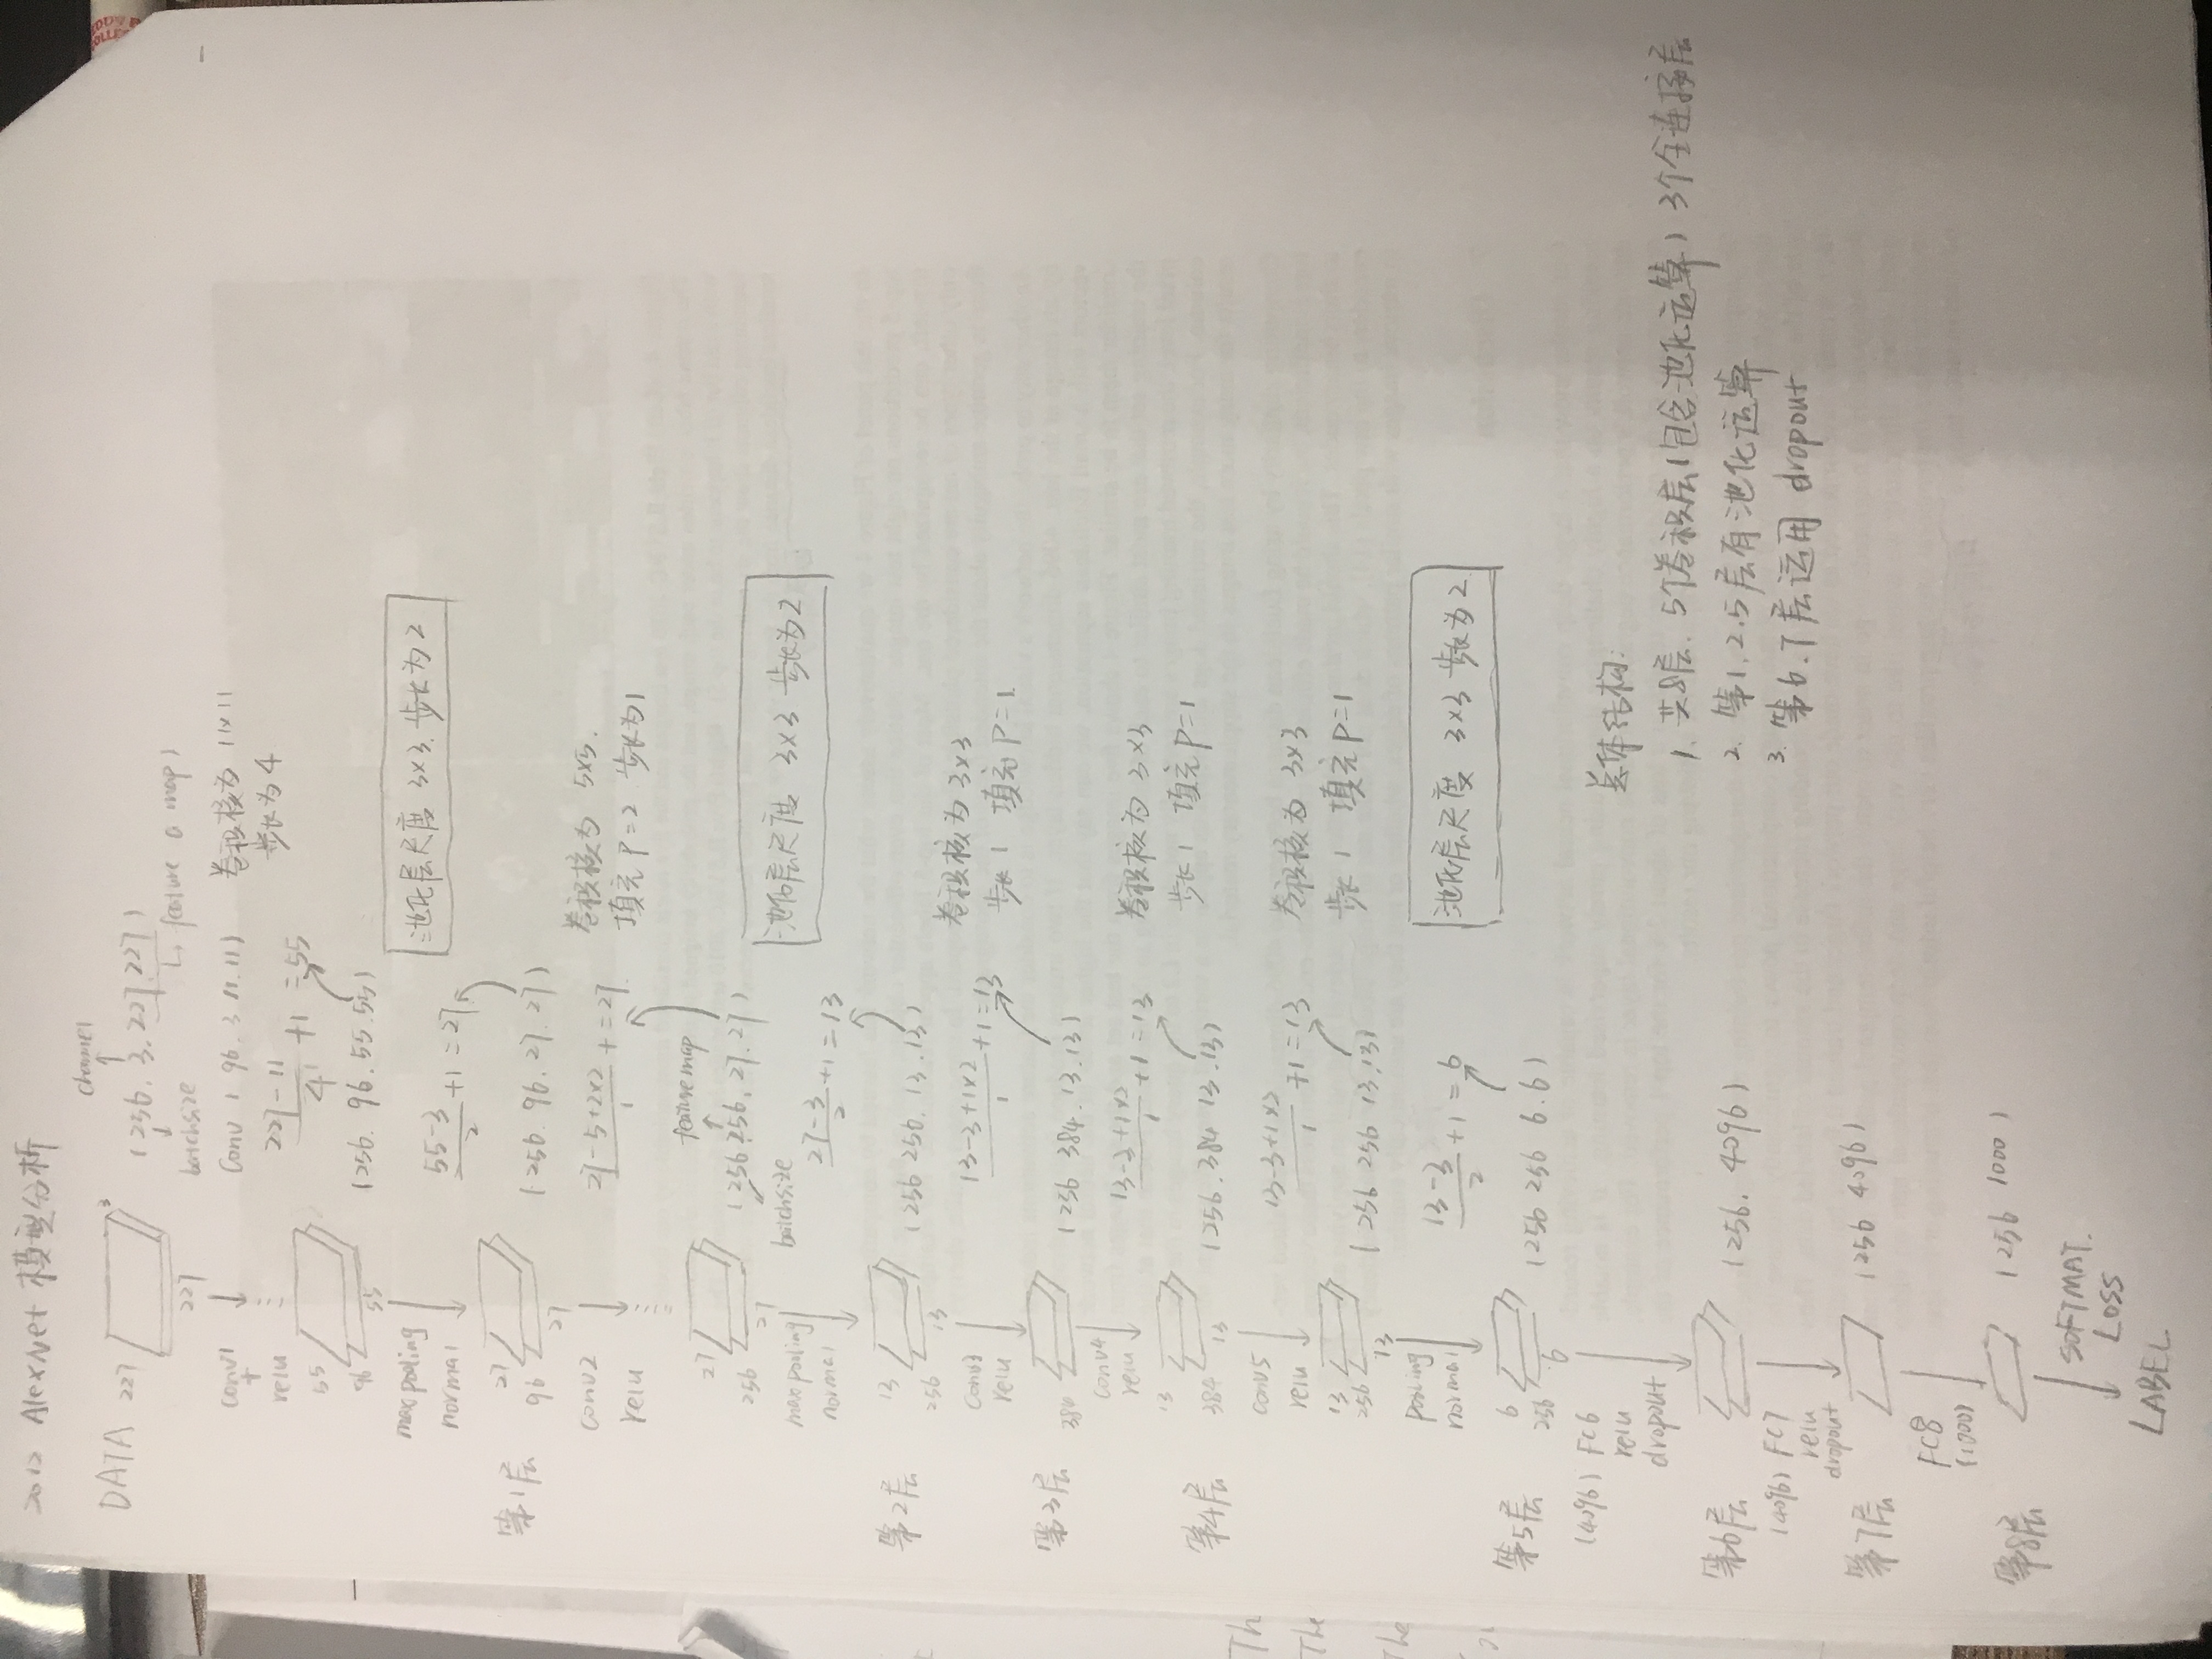 2012 AlexNet 模型分析
DATA 227 227 3
channel
(256. 3. 227. 227)
batchsize
feature map)
conv1
+
relu
Conv ( 96. 3 11. 11)
卷积核为 11×11
步长为 4
227-11/4 +1 =55
55 96 55
(256. 96. 55. 55)
maxpooling
normal
55-3/2 +1=27
池化层尺度 3×3. 步长为 2
第1层
27 96 27
(256. 96. 27. 27)
conv2
relu
27-5+2×2/1 +1=27
卷积核为 5×5.
填充 P=2 步长为1
27 256 27
featuremap
(256 256. 27. 27)
batchsize
maxpooling
normal
27-3/2 +1=13
池化层尺度 3×3 步长为2
第2层
13 256 13
(256 256. 13. 13)
conv3
relu
13-3+1×2/1 +1=13
卷积核为 3×3
步长 1 填充 P=1
第3层
384
(256 384. 13. 13)
conv4
relu
13-3+1×2/1 +1=13
卷积核为 3×3
步长 1 填充 P=1
第4层
13 384 13
(256. 384 13. 13)
conv5
relu
13-3+1×2/1 +1=13
卷积核为 3×3
步长 1 填充 P=1
13 256 13
(256 256 13. 13)
pooling
normal
13-3/2 +1=6
池化层尺度 3×3 步长为2
第5层
6 256 6
(256 256 6.6)
(4096) FC6
relu
dropout
第6层
(256. 4096)
(4096) FC7
relu
dropout
第7层
(256 4096)
FC8
(1000)
第8层
(256 1000)
SOFTMAT.
LOSS
LABEL
总体结构:
1. 共8层. 5个卷积层(包含池化运算) 3个全连接层
2. 第1.2.5层有池化运算
3. 第6.7层运用 dropout